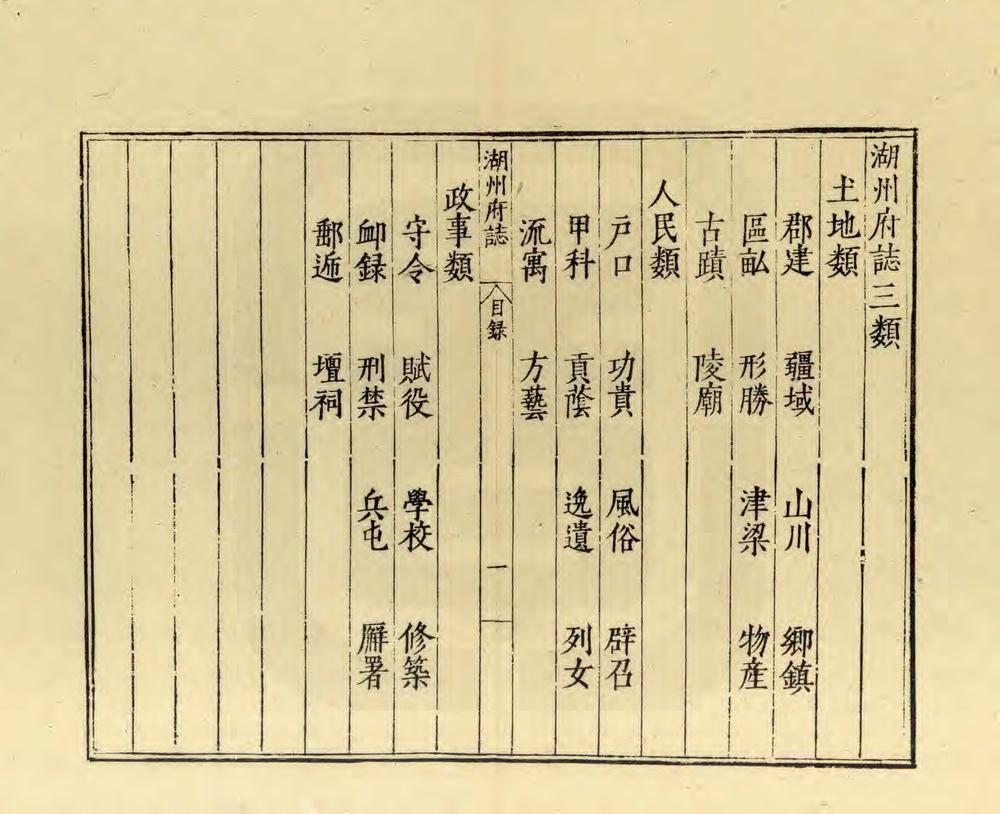 湖州府誌三類
土地類
郡建 疆域 山川 鄉鎮
區畝 形勝 津梁 物産
古蹟 陵廟
人民類
戸口 功貴 風俗 辟召
甲科 貢蔭 逸遺 列女
流寓 方藝
湖州府誌 目録 一
政事類
守令 賦役 學校 修築
卹録 刑禁 兵屯 廨署
郵逓 壇祠